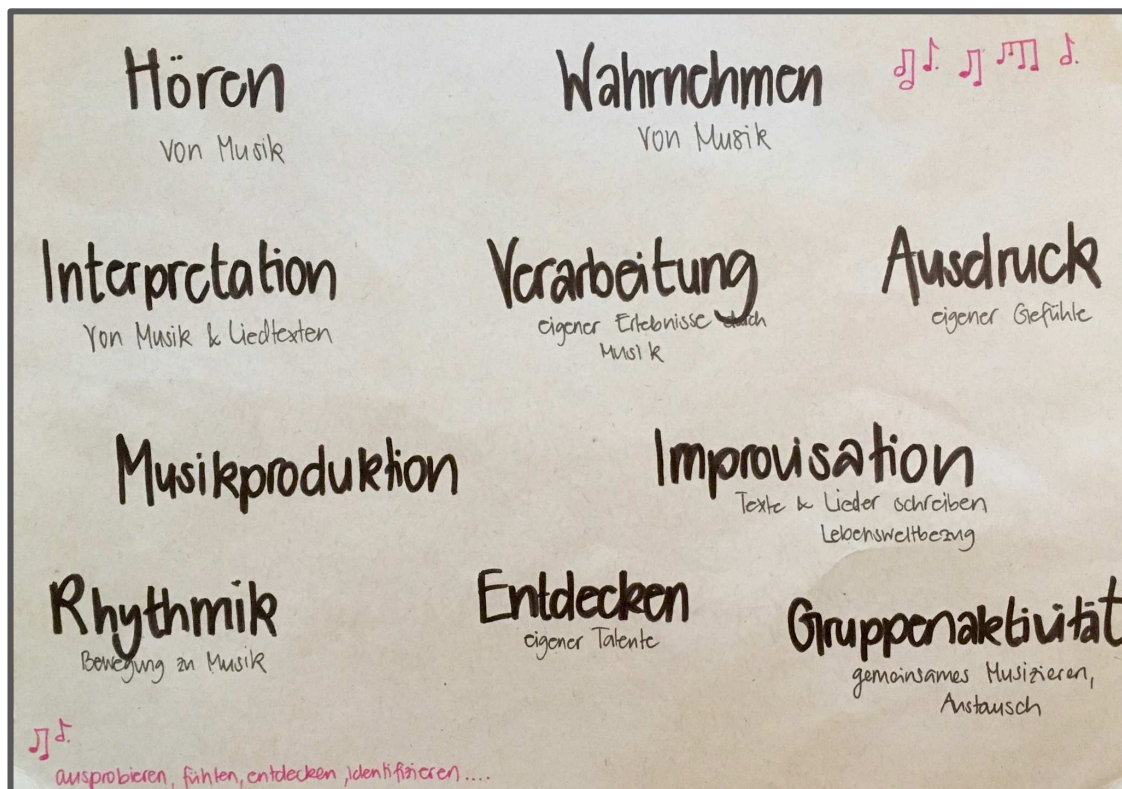 Hören
von Musik
Wahrnehmen
von Musik
Interpretation
von Musik & Liedtexten
Verarbeitung
eigener Erlebnisse durch
Musik
Ausdruck
eigener Gefühle
Musikproduktion
Improvisation
Texte & Lieder schreiben
Lebensweltbezug
Rhythmik
Bewegung zu Musik
Entdecken
eigener Talente
Gruppenaktivität
gemeinsames Musizieren,
Austausch
ausprobieren, fühlen, entdecken, identifizieren....